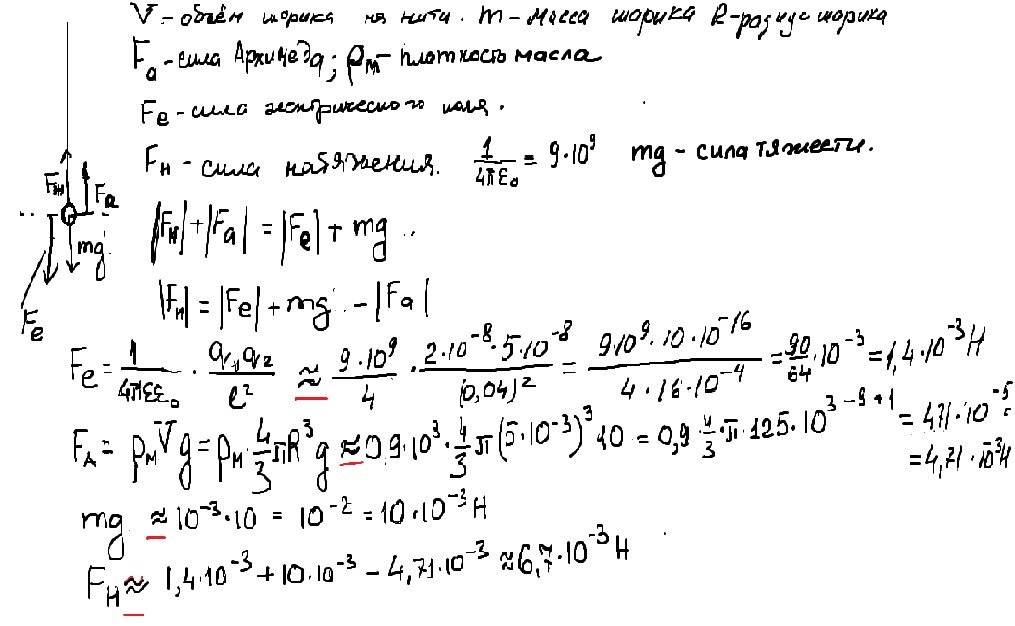 V - объём шарика на нити. m - масса шарика R - радиус шарика
Fа - сила Архимеда; ρм - плотность масла
Fe - сила электрического поля.
Fн - сила натяжения. 1/4πε₀ = 9·10⁹ mg - сила тяжести.
|Fн| + |Fа| = |Fe| + mg
|Fн| = |Fe| + mg - |Fа|
Fн Fа
mg
Fe
Fe = 1/4πεε₀ · q₁q₂/ℓ² ≈ 9·10⁹/4 · 2·10⁻⁸·5·10⁻⁸/(0,04)² = 9·10⁹·10·10⁻¹⁶/4·16·10⁻⁴ = 90/64·10⁻³ = 1,4·10⁻³ Н
FА = ρмVg = ρм·4/3πR³g ≈ 0,9·10³·4/3π(5·10⁻³)³10 = 0,9·4/3·π·125·10³⁻⁹⁺¹ = 471·10⁻⁵
= 4,71·10⁻³Н
mg ≈ 10⁻³·10 = 10⁻² = 10·10⁻³ Н
Fн ≈ 1,4·10⁻³ + 10·10⁻³ - 4,71·10⁻³ ≈ 6,7·10⁻³ Н